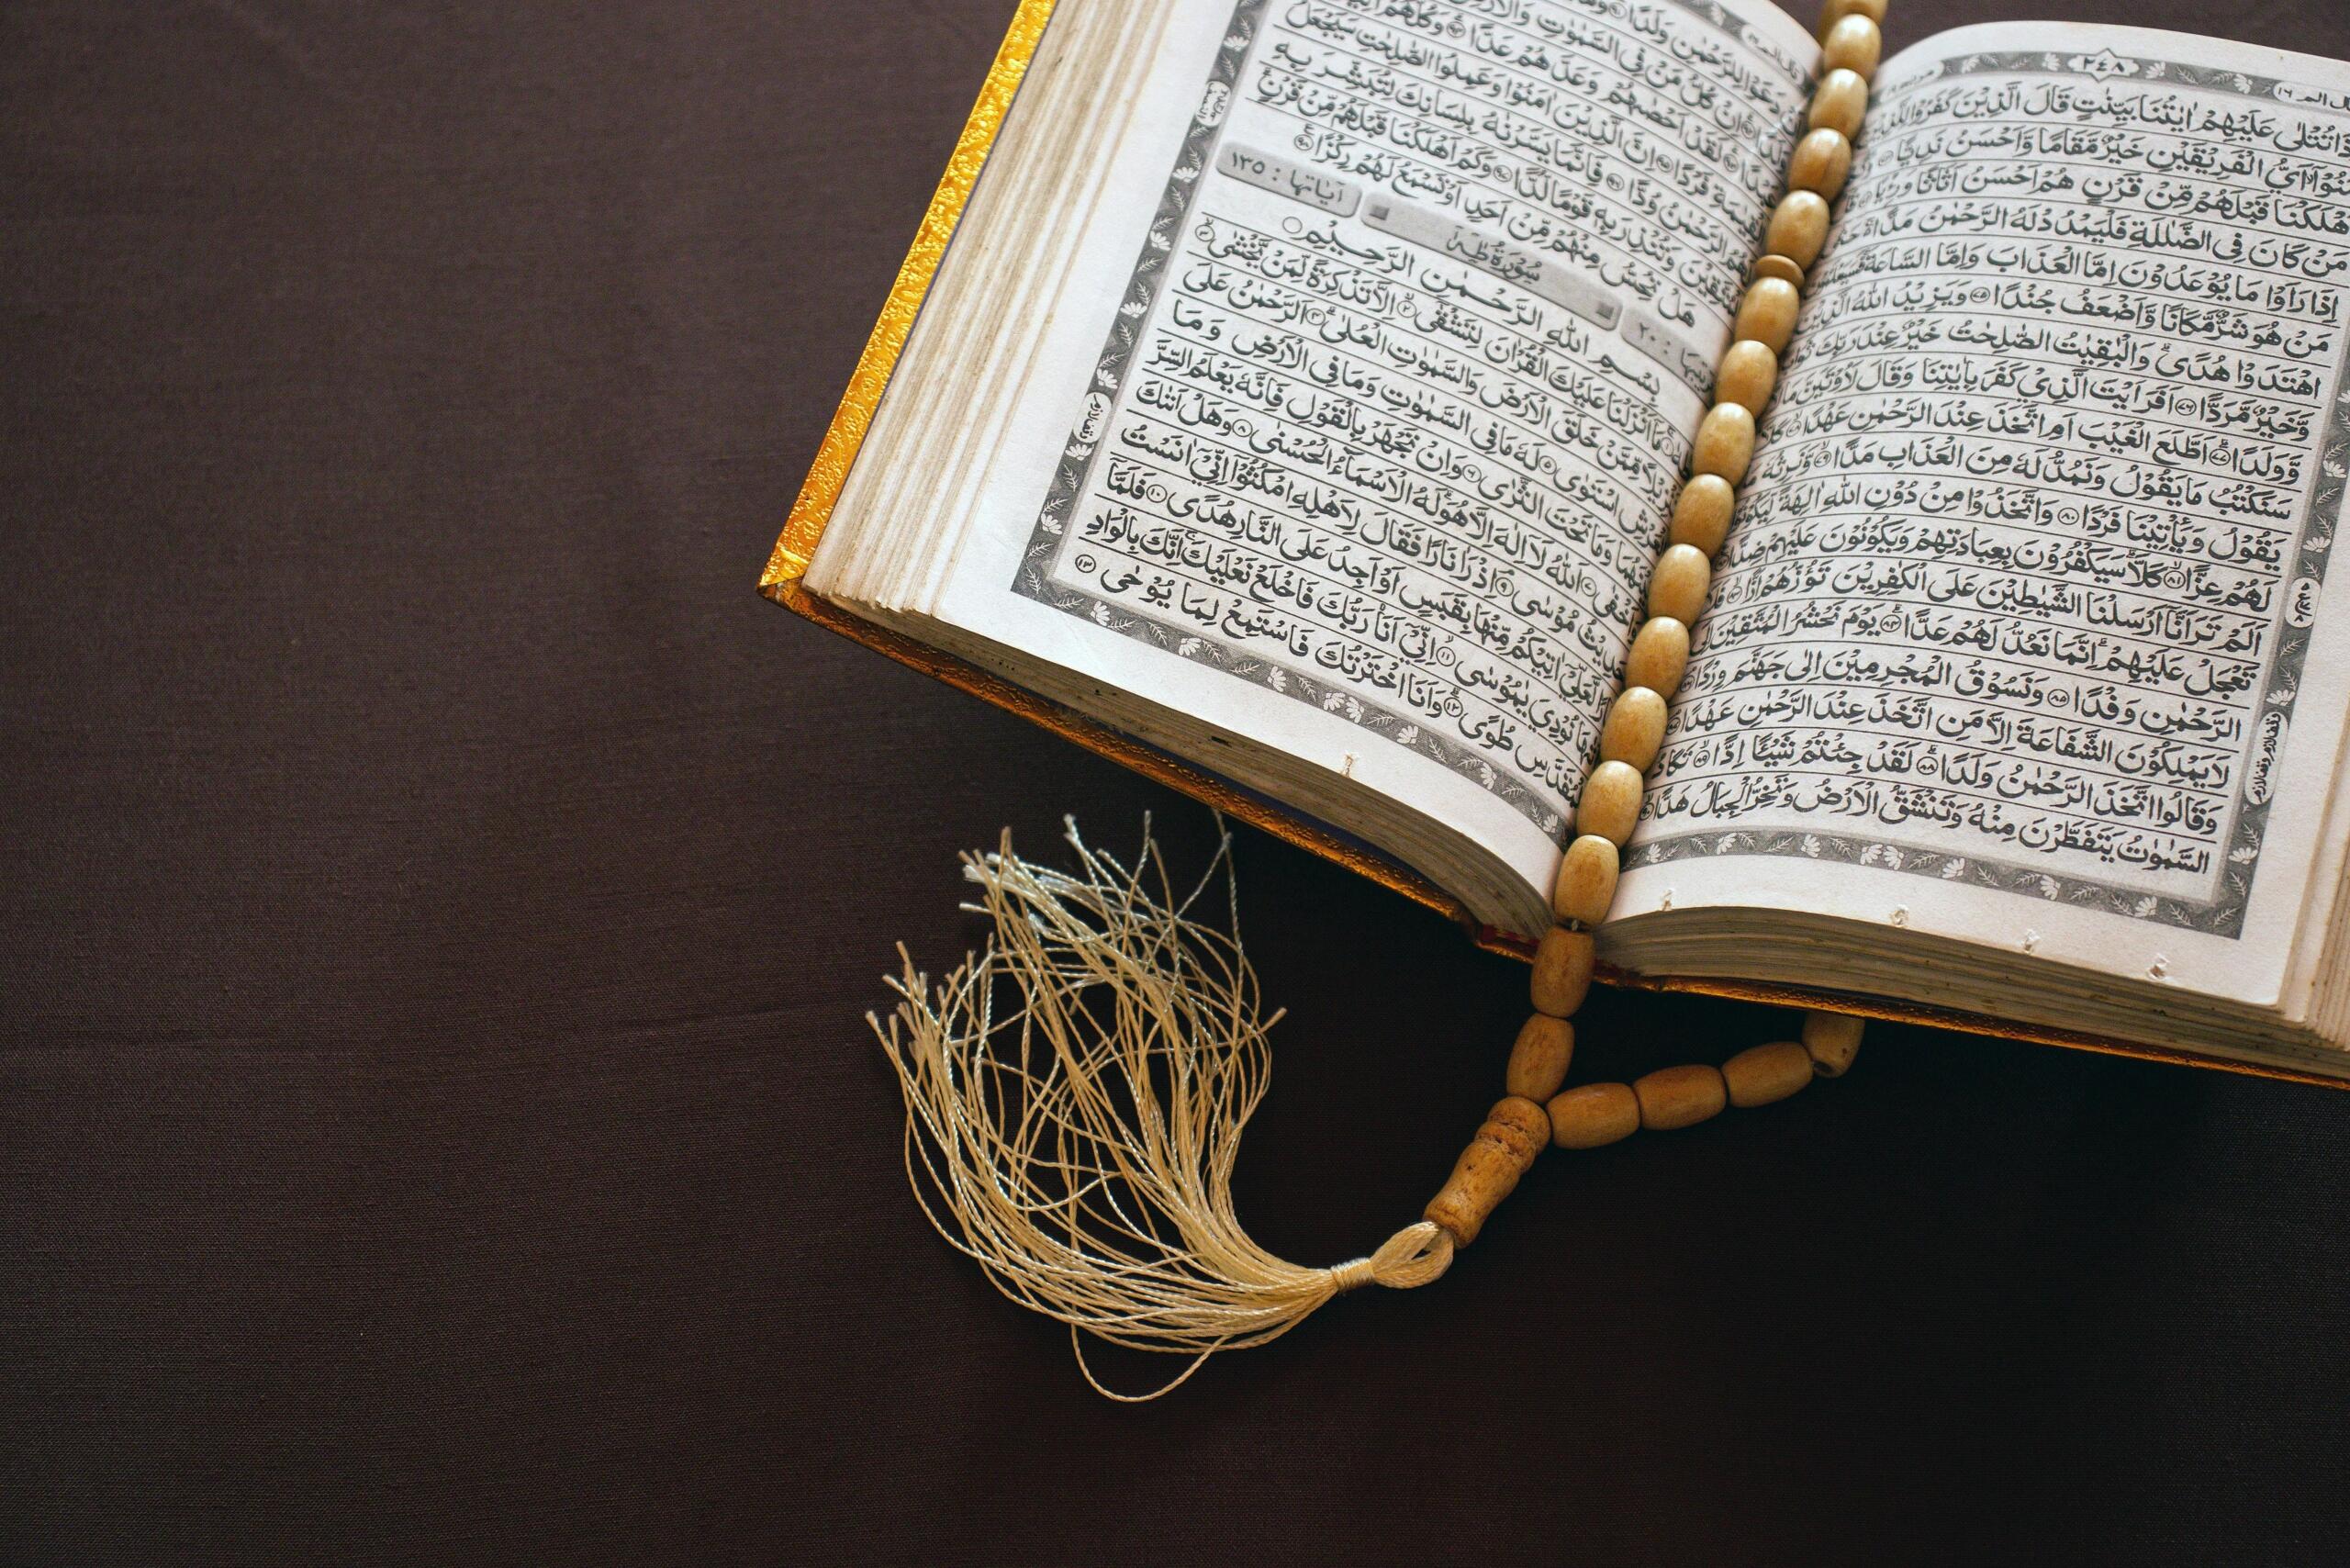 ٢٤٨
عَلَيْهِمْ اٰيٰتُنَا بَيِّنٰتٍ قَالَ الَّذِيْنَ كَفَرُوْا لِلَّذِيْنَ
اَيُّ الْفَرِيْقَيْنِ خَيْرٌ مَّقَامًا وَّاَحْسَنُ نَدِيًّا ﴿٧٣﴾
قَبْلَهُمْ مِّنْ قَرْنٍ هُمْ اَحْسَنُ اَثَاثًا وَّرِءْيًا ﴿٧٤﴾
مَنْ كَانَ فِى الضَّلٰلَةِ فَلْيَمْدُدْ لَهُ الرَّحْمٰنُ مَدًّا
اِذَا رَاَوْا مَا يُوْعَدُوْنَ اِمَّا الْعَذَابَ وَاِمَّا السَّاعَةَ
مَنْ هُوَ شَرٌّ مَّكَانًا وَّاَضْعَفُ جُنْدًا ﴿٧٥﴾ وَيَزِيْدُ اللّٰهُ الَّذِيْنَ
اهْتَدَوْا هُدًى وَالْبٰقِيٰتُ الصّٰلِحٰتُ خَيْرٌ عِنْدَ رَبِّكَ ثَوَابًا
وَّخَيْرٌ مَّرَدًّا ﴿٧٦﴾ اَفَرَءَيْتَ الَّذِيْ كَفَرَ بِاٰيٰتِنَا وَقَالَ لَاُوْتَيَنَّ مَالًا
وَّوَلَدًا ﴿٧٧﴾ اَطَّلَعَ الْغَيْبَ اَمِ اتَّخَذَ عِنْدَ الرَّحْمٰنِ عَهْدًا ﴿٧٨﴾
سَنَكْتُبُ مَا يَقُوْلُ وَنَمُدُّ لَهٗ مِنَ الْعَذَابِ مَدًّا ﴿٧٩﴾ وَّنَرِثُهٗ
يَقُوْلُ وَيَأْتِيْنَا فَرْدًا ﴿٨٠﴾ وَاتَّخَذُوْا مِنْ دُوْنِ اللّٰهِ اٰلِهَةً
لَهُمْ عِزًّا ﴿٨١﴾ كَلَّا سَيَكْفُرُوْنَ بِعِبَادَتِهِمْ وَيَكُوْنُوْنَ عَلَيْهِمْ ضِدًّا
اَلَمْ تَرَ اَنَّا اَرْسَلْنَا الشَّيٰطِيْنَ عَلَى الْكٰفِرِيْنَ تَؤُزُّهُمْ اَزًّا ﴿٨٣﴾
تَعْجَلْ عَلَيْهِمْ اِنَّمَا نَعُدُّ لَهُمْ عَدًّا ﴿٨٤﴾ يَوْمَ نَحْشُرُ الْمُتَّقِيْنَ اِلَى
الرَّحْمٰنِ وَفْدًا ﴿٨٥﴾ وَّنَسُوْقُ الْمُجْرِمِيْنَ اِلٰى جَهَنَّمَ وِرْدًا
لَا يَمْلِكُوْنَ الشَّفَاعَةَ اِلَّا مَنِ اتَّخَذَ عِنْدَ الرَّحْمٰنِ عَهْدًا
وَقَالُوا اتَّخَذَ الرَّحْمٰنُ وَلَدًا ﴿٨٨﴾ لَقَدْ جِئْتُمْ شَيْئًا اِدًّا ﴿٨٩﴾ تَكَادُ
السَّمٰوٰتُ يَتَفَطَّرْنَ مِنْهُ وَتَنْشَقُّ الْاَرْضُ وَتَخِرُّ الْجِبَالُ هَدًّا ﴿٩٠﴾
دَعَوْا لِلرَّحْمٰنِ وَلَدًا
اِنْ كُلُّ مَنْ فِى السَّمٰوٰتِ وَالْاَرْضِ
لَقَدْ اَحْصٰىهُمْ وَعَدَّهُمْ عَدًّا ﴿٩٤﴾ وَكُلُّهُمْ
فَرْدًا ﴿٩٥﴾ اِنَّ الَّذِيْنَ اٰمَنُوْا وَعَمِلُوا الصّٰلِحٰتِ سَيَجْعَلُ
الرَّحْمٰنُ وُدًّا ﴿٩٦﴾ فَاِنَّمَا يَسَّرْنٰهُ بِلِسَانِكَ لِتُبَشِّرَ بِهِ
وَتُنْذِرَ بِهٖ قَوْمًا لُّدًّا ﴿٩٧﴾ وَكَمْ اَهْلَكْنَا قَبْلَهُمْ مِّنْ قَرْنٍ
هَلْ تُحِسُّ مِنْهُمْ مِّنْ اَحَدٍ اَوْ تَسْمَعُ لَهُمْ رِكْزًا ﴿٩٨﴾
٢٠ سُوْرَةُ طٰهٰ آياتها : ١٣٥
بِسْمِ اللّٰهِ الرَّحْمٰنِ الرَّحِيْمِ
مَا اَنْزَلْنَا عَلَيْكَ الْقُرْاٰنَ لِتَشْقٰى ﴿٢﴾ اِلَّا تَذْكِرَةً لِّمَنْ يَّخْشٰى ﴿٣﴾
مِّمَّنْ خَلَقَ الْاَرْضَ وَالسَّمٰوٰتِ الْعُلٰى ﴿٤﴾ اَلرَّحْمٰنُ عَلَى
الْعَرْشِ اسْتَوٰى ﴿٥﴾ لَهٗ مَا فِى السَّمٰوٰتِ وَمَا فِى الْاَرْضِ وَمَا
بَيْنَهُمَا وَمَا تَحْتَ الثَّرٰى ﴿٦﴾ وَاِنْ تَجْهَرْ بِالْقَوْلِ فَاِنَّهٗ يَعْلَمُ السِّرَّ
وَاَخْفٰى ﴿٧﴾ اَللّٰهُ لَا اِلٰهَ اِلَّا هُوَ لَهُ الْاَسْمَاءُ الْحُسْنٰى ﴿٨﴾ وَهَلْ اَتٰىكَ
حَدِيْثُ مُوْسٰى ﴿٩﴾ اِذْ رَاٰ نَارًا فَقَالَ لِاَهْلِهِ امْكُثُوْا اِنِّيْ اٰنَسْتُ
لَّعَلِّيْ اٰتِيْكُمْ مِّنْهَا بِقَبَسٍ اَوْ اَجِدُ عَلَى النَّارِ هُدًى ﴿١٠﴾ فَلَمَّا
نُوْدِيَ يٰمُوْسٰى ﴿١١﴾ اِنِّيْ اَنَا رَبُّكَ فَاخْلَعْ نَعْلَيْكَ اِنَّكَ بِالْوَادِ
الْمُقَدَّسِ طُوًى ﴿١٢﴾ وَاَنَا اخْتَرْتُكَ فَاسْتَمِعْ لِمَا يُوْحٰى ﴿١٣﴾